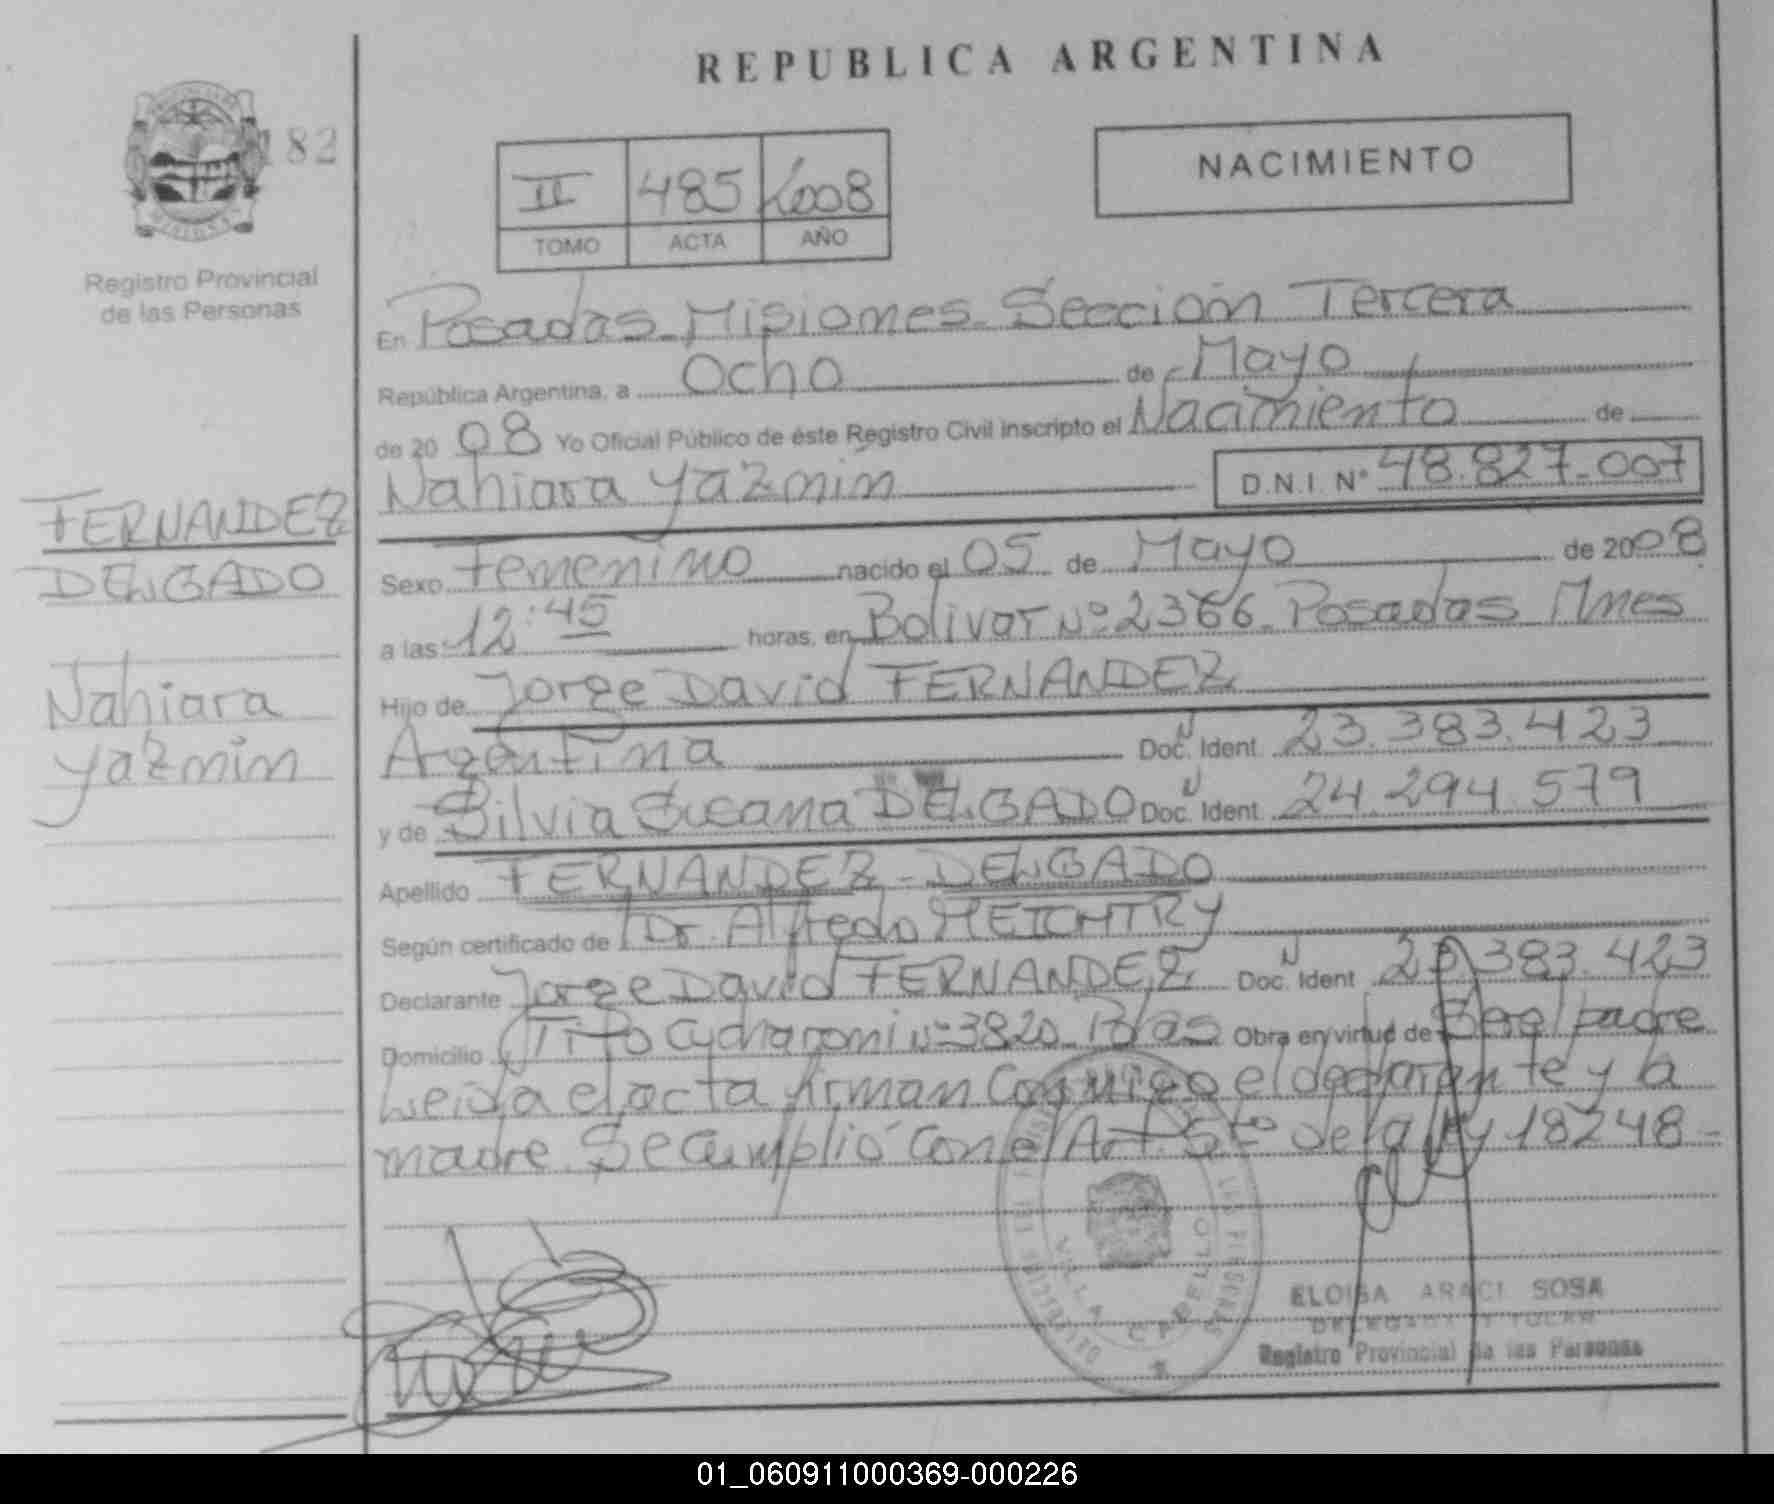 REPUBLICA ARGENTINA
182
NACIMIENTO
II 485 2008
TOMO ACTA AÑO
Registro Provincial
de las Personas
En Posadas Misiones Sección Tercera
República Argentina, a Ocho de Mayo
de 2008 Yo Oficial Público de éste Registro Civil inscripto el Nacimiento de
Nahiara Yazmin D.N.I. Nº 48.827.007
FERNANDEZ
DELGADO
Nahiara
Yazmin
Sexo Femenino nacido el 05 de Mayo de 2008
a las 12:45 horas, en Bolivar Nº 2366 Posadas Mnes
Hijo de Jorge David FERNANDEZ
Argentina Doc. Ident. 23.383.423
y de Silvia Susana DELGADO Doc. Ident. 24.294.579
Apellido FERNANDEZ - DELGADO
Según certificado de Dr. Alfredo MEICHTRY
Declarante Jorge David FERNANDEZ Doc. Ident 23.383.423
Domicilio Tito Nº 3820 Pdas Obra en virtud de Ser el padre
Leida el acta firman conmigo el declarante y la
madre. Se cumplió con el Art. 5to de la ley 18248 -
VILLA CABELLO
ELOISA ARACI SOSA
DELEGADA TITULAR
Registro Provincial de las Personas
01_060911000369-000226